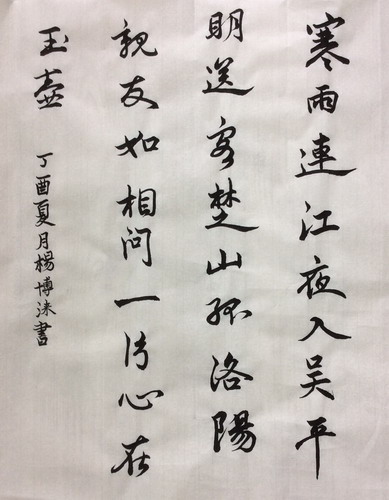 寒雨連江夜入吴平
明送客楚山孤洛陽
親友如相問一片心在
玉壺
丁酉夏月楊博洙書